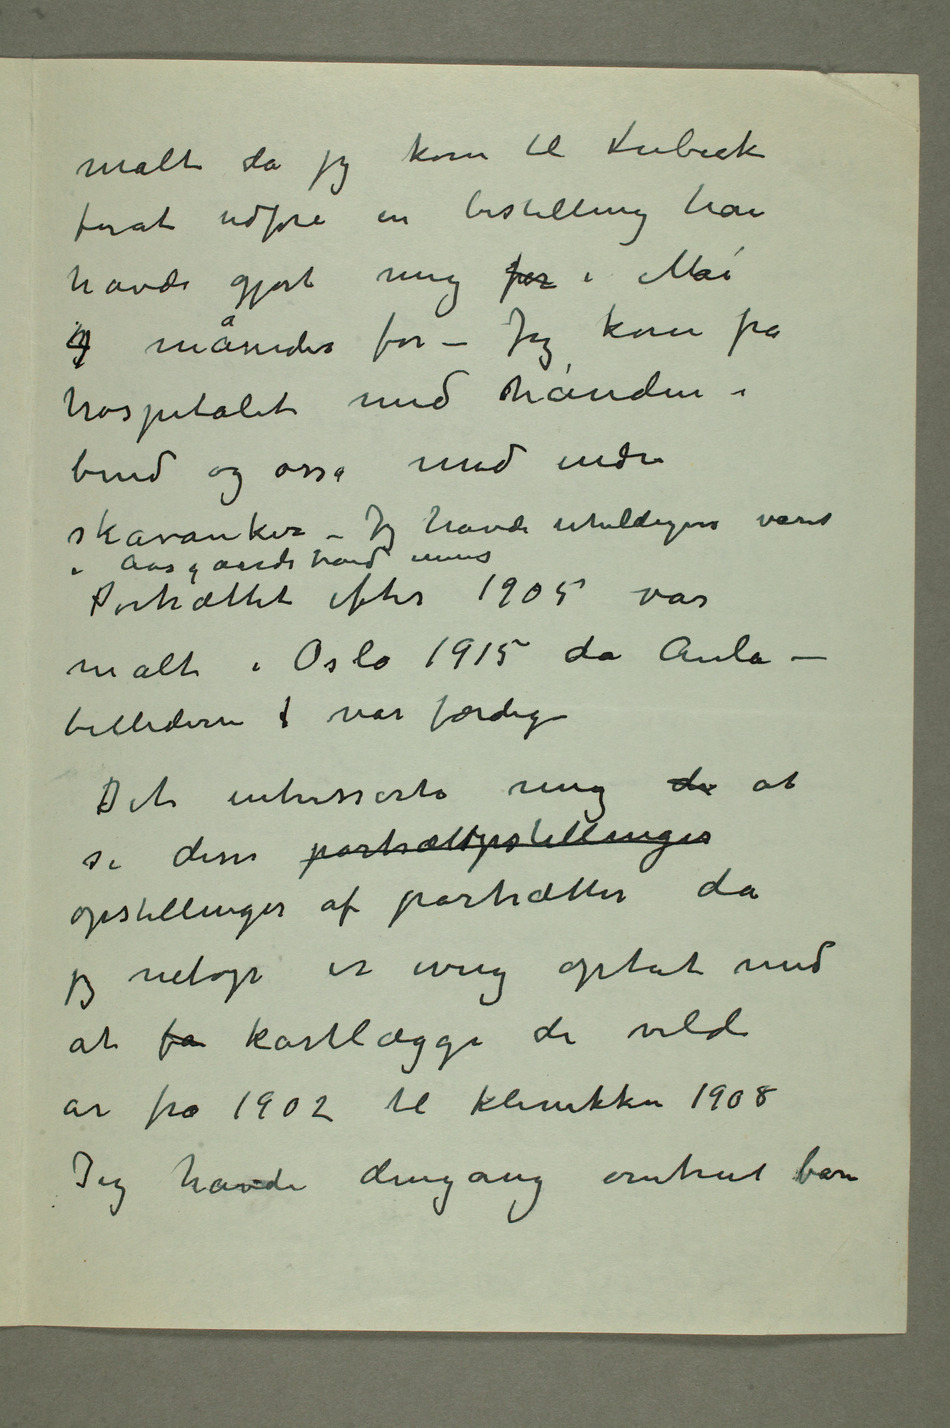 malt da jeg kom til Lübeck
forat udføre en bestilling han
havde gjort mig for i Mai
4 måneder før – Jeg kom fra
hospitalet med hånden i
bind og osså med indre
skavanker – Jeg havde uheldigvis været
i Aasgaardstrand
Portrættet efter 1905 var
malt i Oslo 1915 da Aula –
billederne var færdige
Det interesserte mig de at
se disse portrættopstillinger
opstillinger af portrætter da
jeg netop er ivrig optat med
at få kartlægge de vilde
år fra 1902 til klinikken 1908
Jeg havde dengang omtrent bare